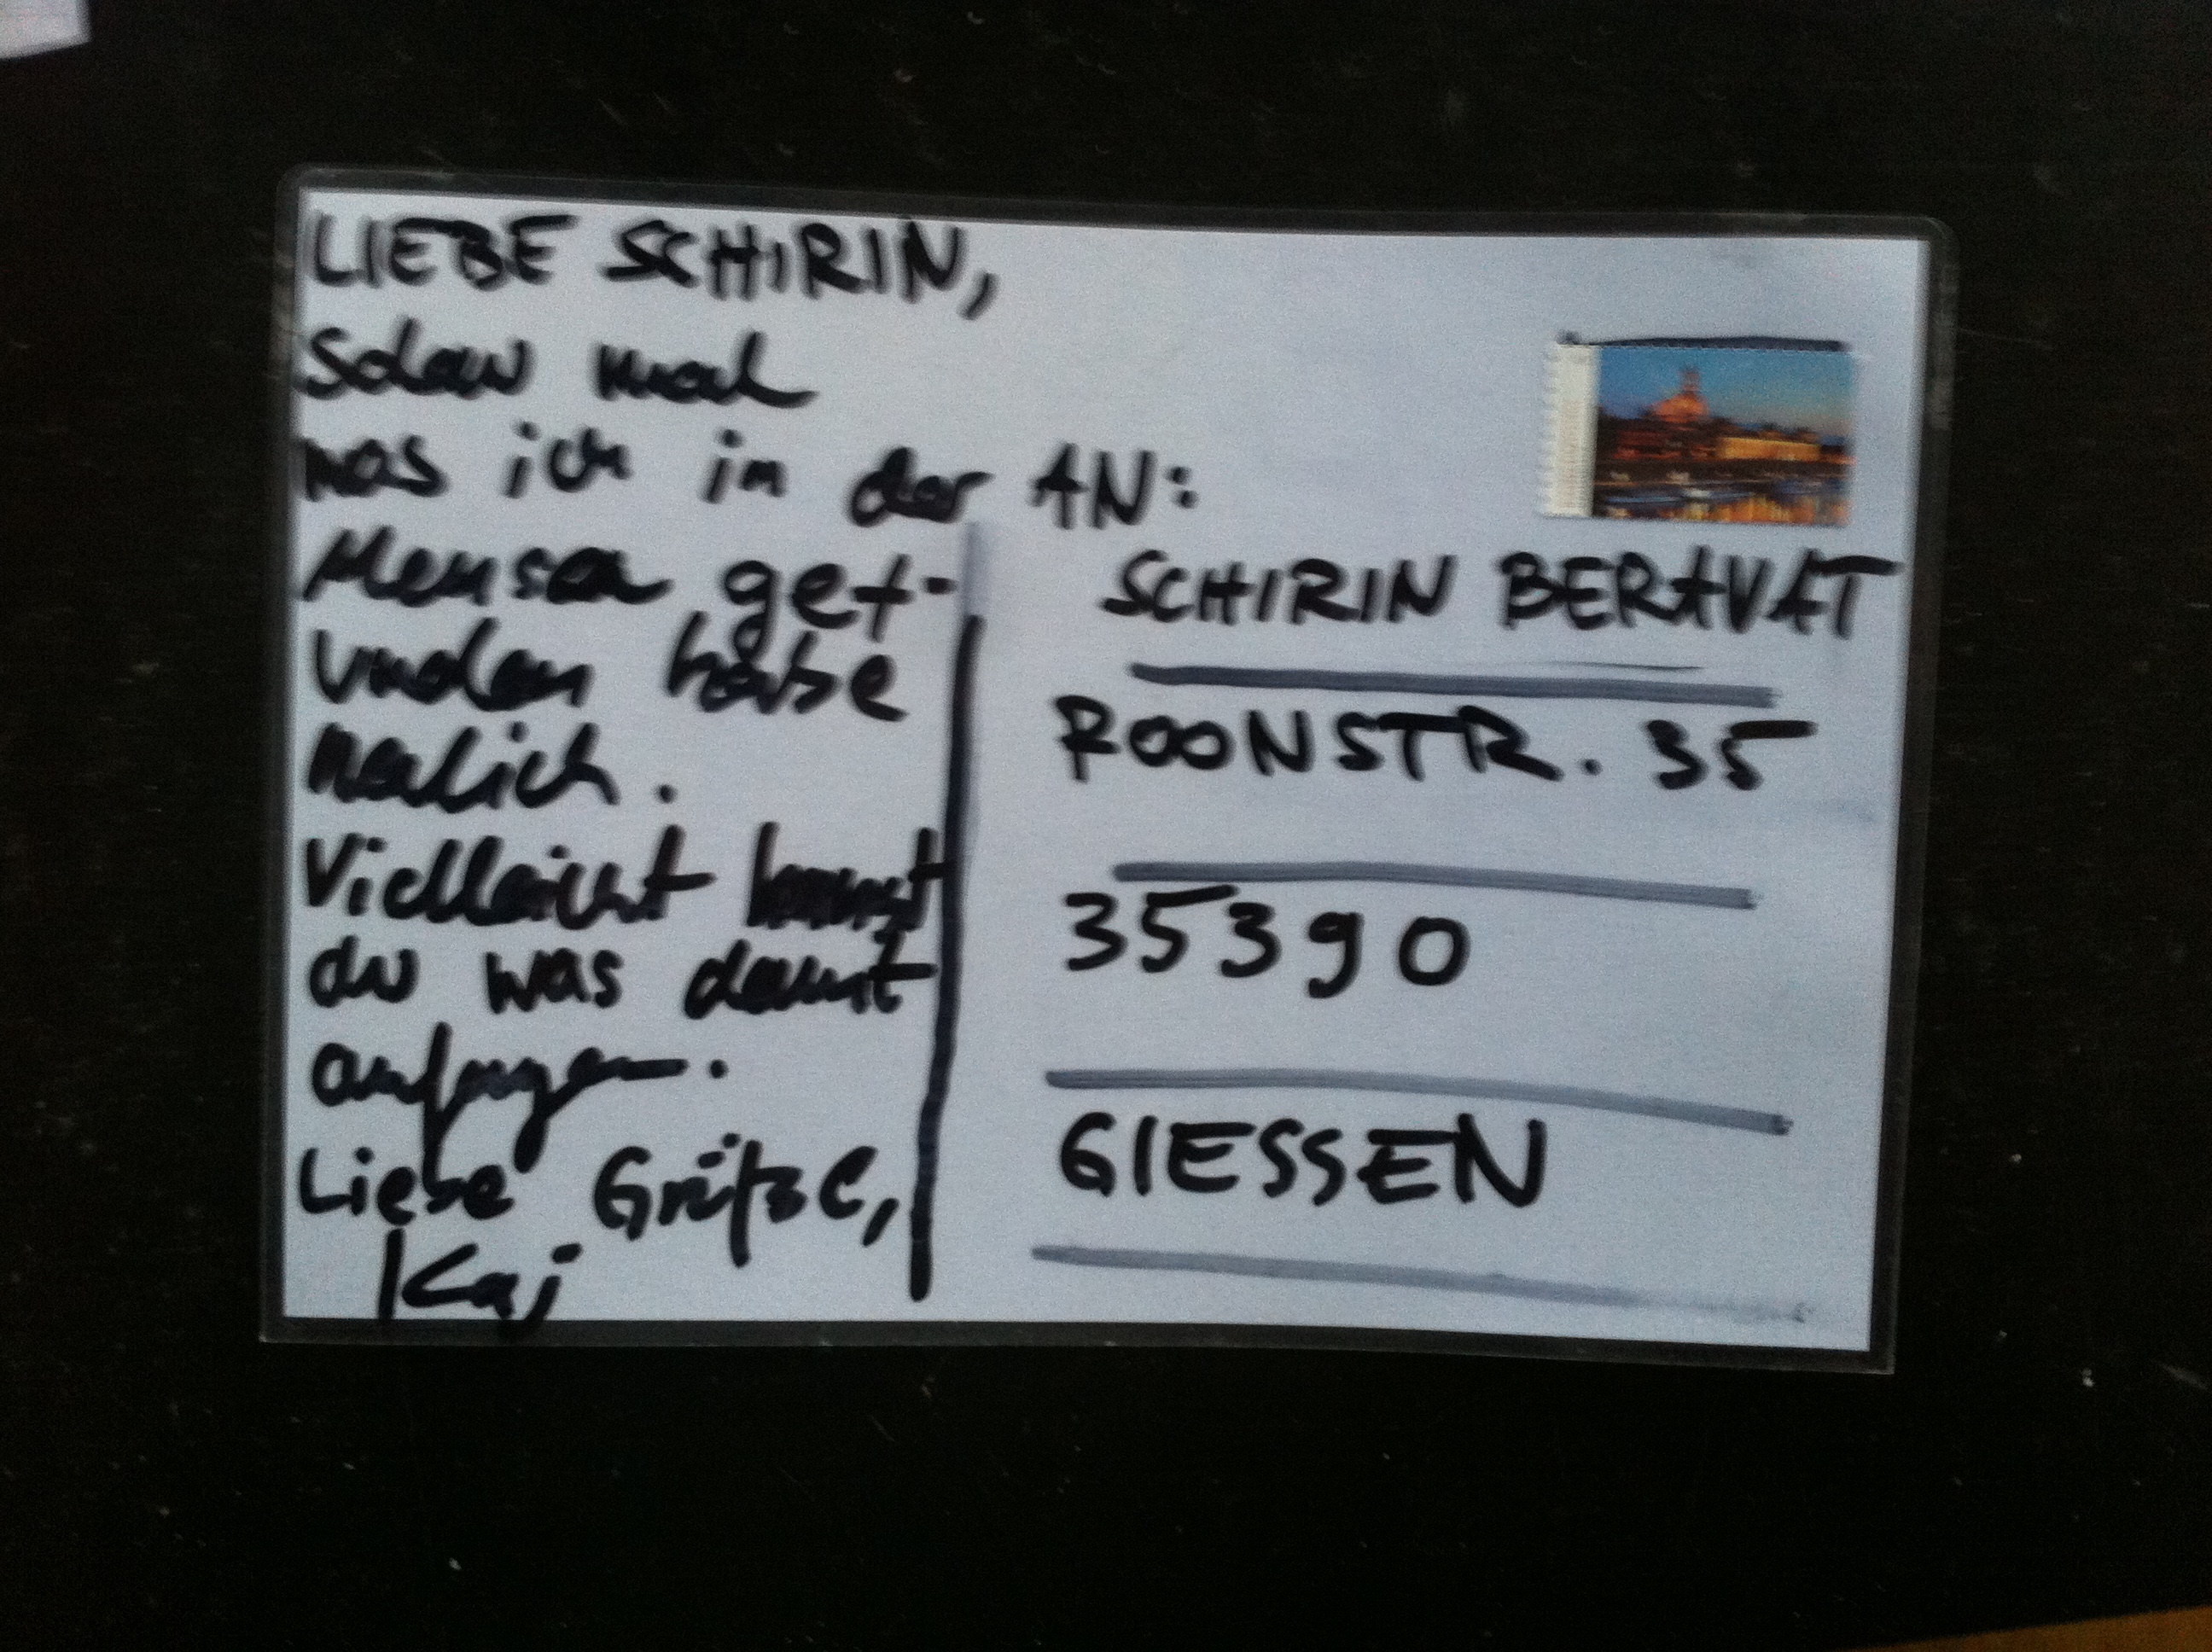 LIEBE SCHIRIN,
Schau mal
was ich in der
Mensa gef-
unden habe
neulich.
Vielleicht kannst
du was damit
anfangen.
Liebe Grüße,
Kai
AN:
SCHIRIN BERAVAT
ROONSTR. 35
35390
GIESSEN